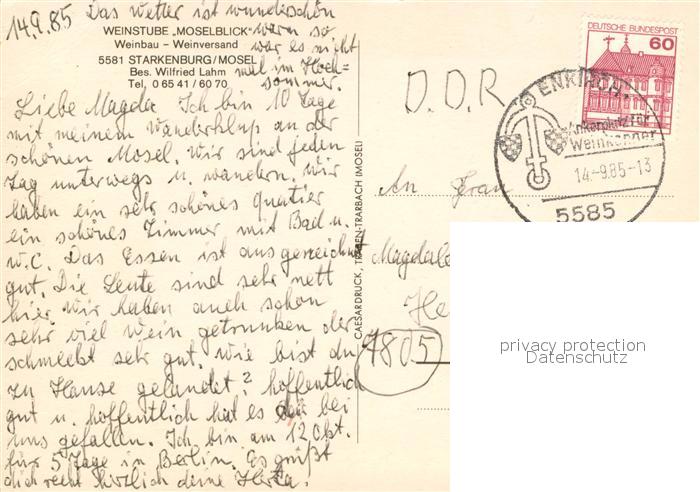 14.9.85 Das Wetter ist wunderschön
warm so
war es nicht
mal im Hoch=
sommer.
WEINSTUBE „MOSELBLICK"
Weinbau – Weinversand
5581 STARKENBURG/MOSEL
Bes. Wilfried Lahm
Tel. 0 65 41 / 60 70
Liebe Magda. Ich bin 10 Tage
mit meinem Wanderklup an der
schönen Mosel. Wir sind jeden
Tag unterwegs u. wandern. Wir
haben ein sehr schönes Quatier
ein schönes Zimmer mit Bad u.
W.C. Das Essen ist ausgezeichnet
gut. Die Leute sind sehr nett
hier. Wir haben auch schon
sehr viel Wein getrunken der
schmeckt sehr gut. Wie bist du
zu Hause gelandet? hoffentlich
gut u. hoffentlich hat es bei
uns gefallen. Ich bin am 12 Okt.
für 5 Tage in Berlin. Es grüßt
dich recht herzlich deine Herta.
CAESARDRUCK, TRABEN-TRARBACH (MOSEL)
D.D.R
DEUTSCHE BUNDESPOST
60
ENKIRCH
Ankerplatz für
Weinkenner
14.-9.85-13
5585
An Frau
Magdale
He
4805
privacy protection
Datenschutz